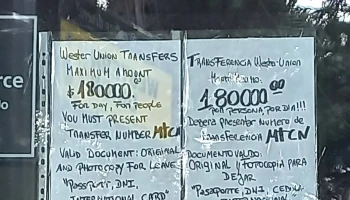 rce
lo
WESTER UNION TRANSFERS
MAXIMUM AMOUNT
$ 180000.
FOR DAY, FOR PEOPLE
YOU MUST PRESENT
TRANSFER NUMBER MTCN
VALID DOCUMENT: ORIGINAL
AND PHOTOCOPY FOR LEAVE
"PASSPORT, DNI,
INTERNATIONAL CARD"
TRANSFERENCIA WESTER UNION
180000.00
POR PERSONA, POR DIA!!!
DEBERA PRESENTAR NUMERO DE
TRANSFERENCIA MTCN
DOCUMENTO VALIDO:
ORIGINAL Y FOTOCOPIA PARA
DEJAR
"PASAPORTE, DNI, CEDULA
INTERNACIONAL"